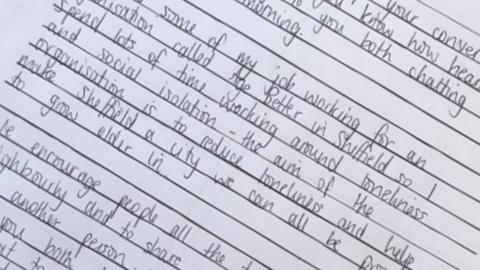 your conver
you know how hear
morning.
to you both chatting
some of my job working for an
organisation called Age Better in Sheffield so I
spend lots of time working around loneliness
and social isolation - the aim of the
organisation is to reduce loneliness and help
make Sheffield a city we can all be
to grow older in
encourage people all the
and to share
another person
you both
to